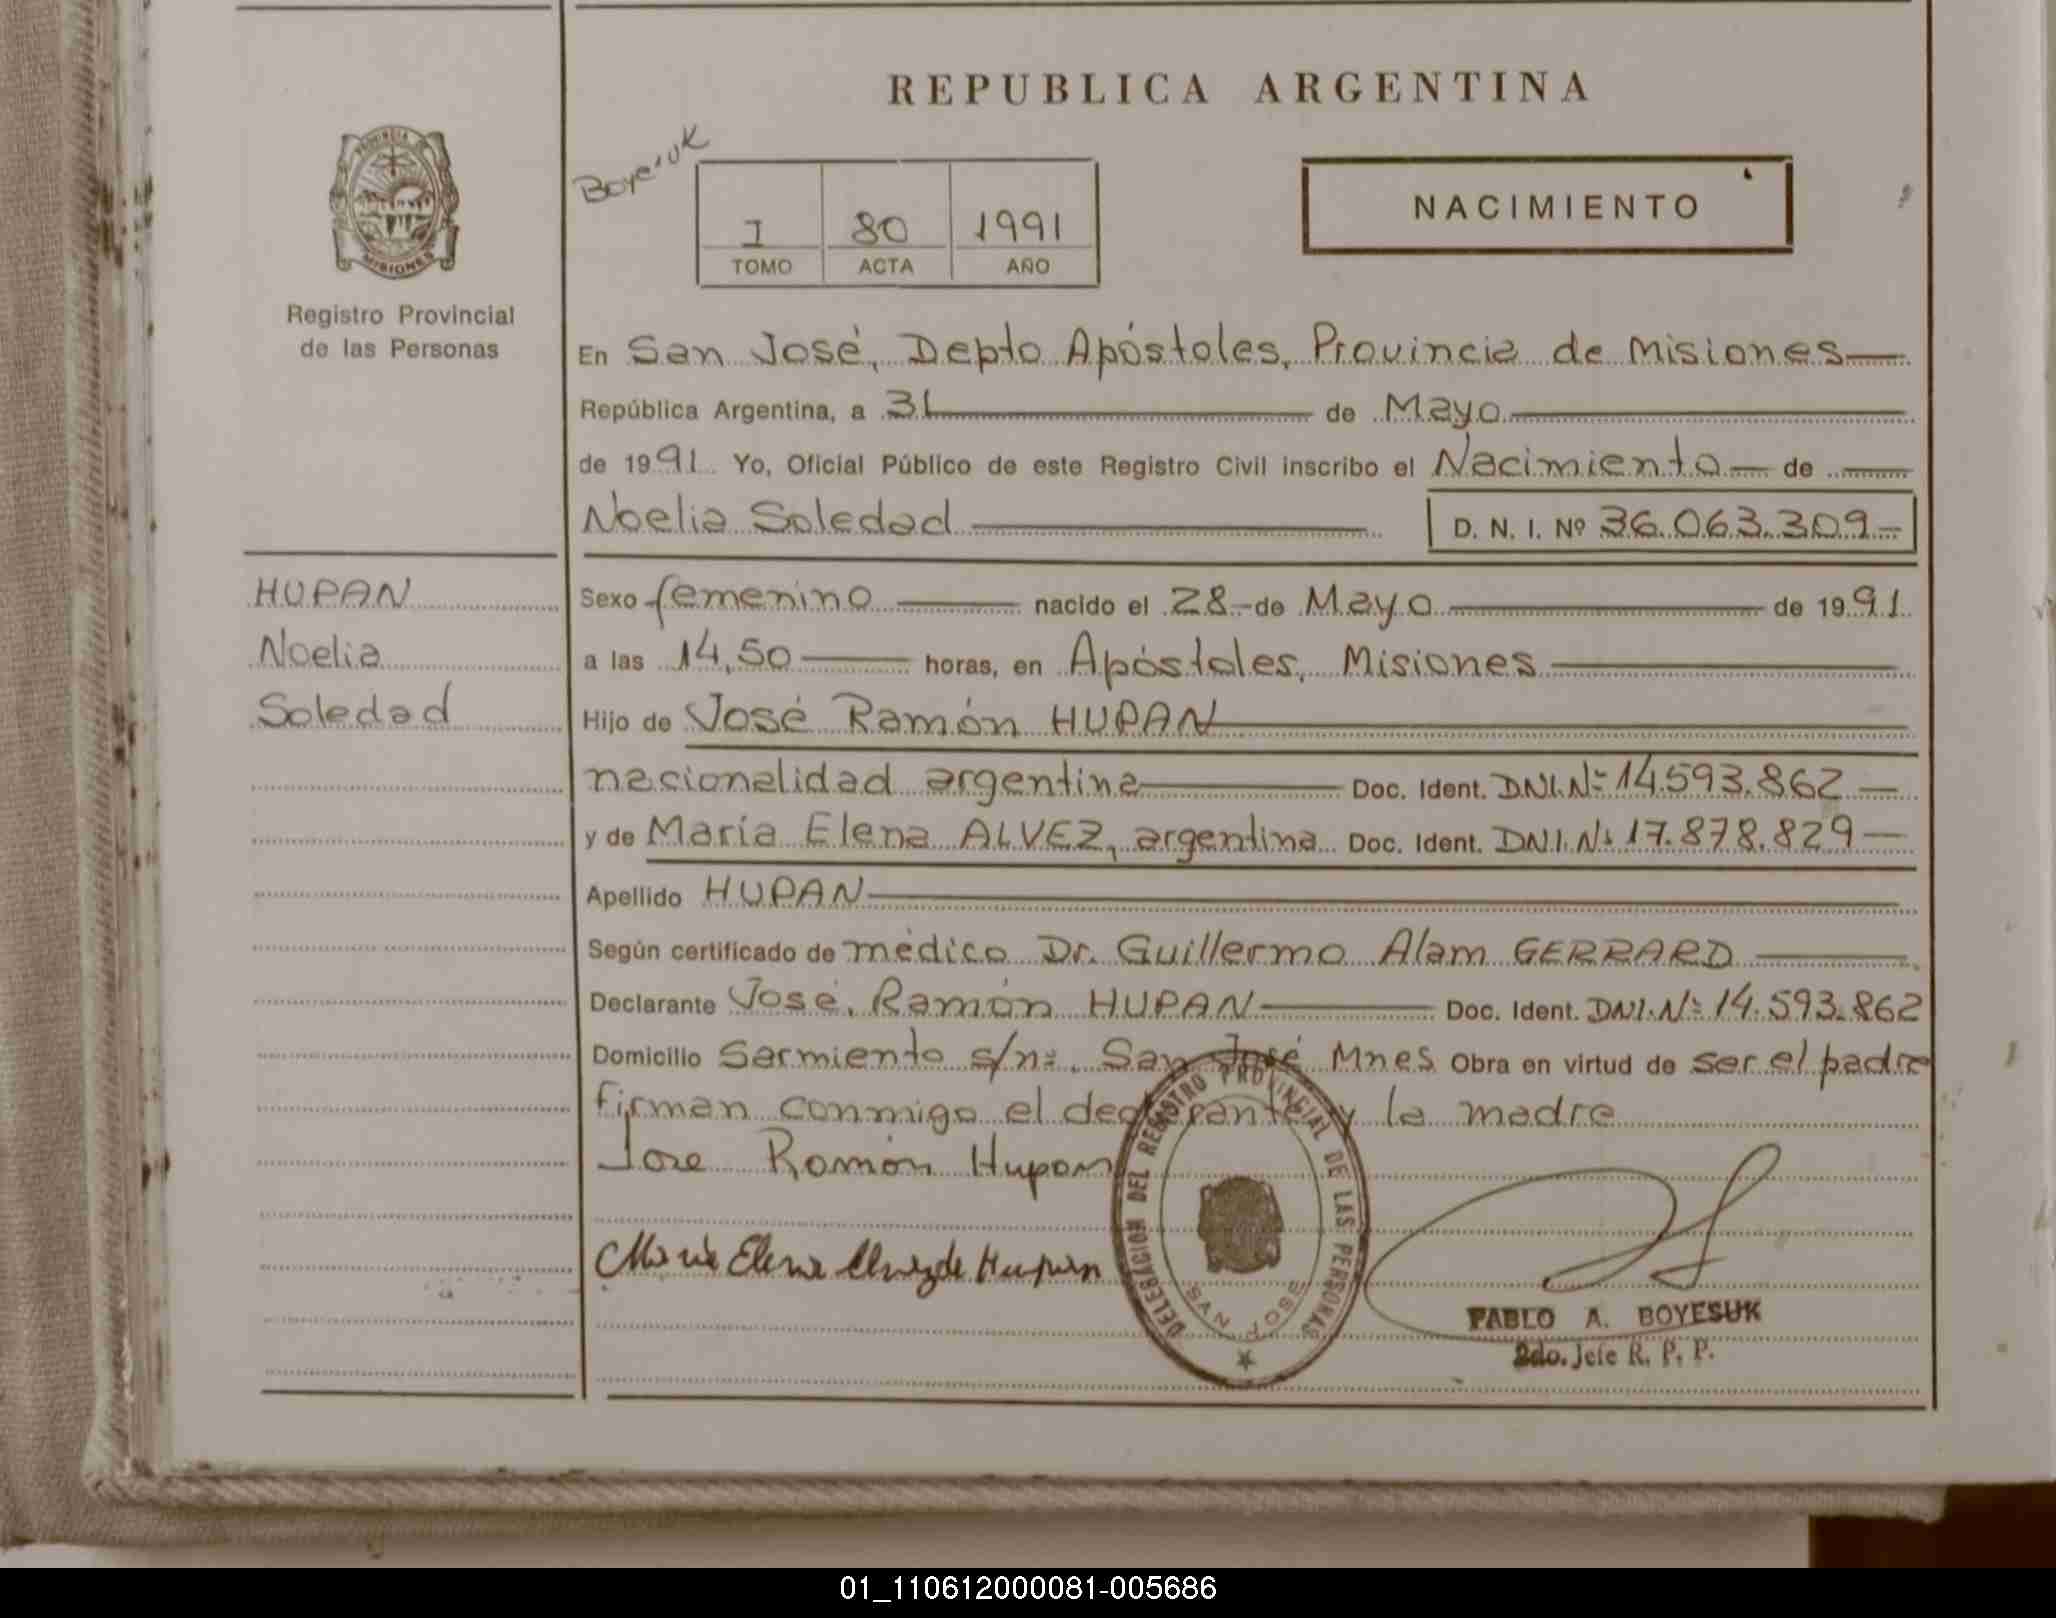 REPUBLICA ARGENTINA
PROVINCIA DE
MISIONES
Registro Provincial
de las Personas
Boyesuk
I 80 1991
TOMO ACTA AÑO
NACIMIENTO
En San José, Depto Apóstoles, Provincia de Misiones
República Argentina, a 31 de Mayo
de 1991 Yo, Oficial Público de este Registro Civil inscribo el Nacimiento de
Noelia Soledad D. N. I. Nº 36.063.309
HUPAN
Noelia
Soledad
Sexo femenino nacido el 28 de Mayo de 1991
a las 14,50 horas, en Apóstoles, Misiones
Hijo de José Ramón HUPAN
nacionalidad argentina Doc. Ident. DNI.Nº 14.593.862
y de María Elena ALVEZ, argentina Doc. Ident. DNI.Nº 17.878.829
Apellido HUPAN
Según certificado de médico Dr. Guillermo Alam GERRARD
Declarante José Ramón HUPAN Doc. Ident. DNI.Nº 14.593.862
Domicilio Sarmiento s/nº, San José Mnes Obra en virtud de ser el padre
firman conmigo el declarante y la madre
Jose Ramón Hupan
Maria Elena Alvez de Hupan
DELEGACION DEL REGISTRO PROVINCIAL DE LAS PERSONAS
SAN JOSE
PABLO A. BOYESUK
2do. Jefe R. P. P.
01_110612000081-005686